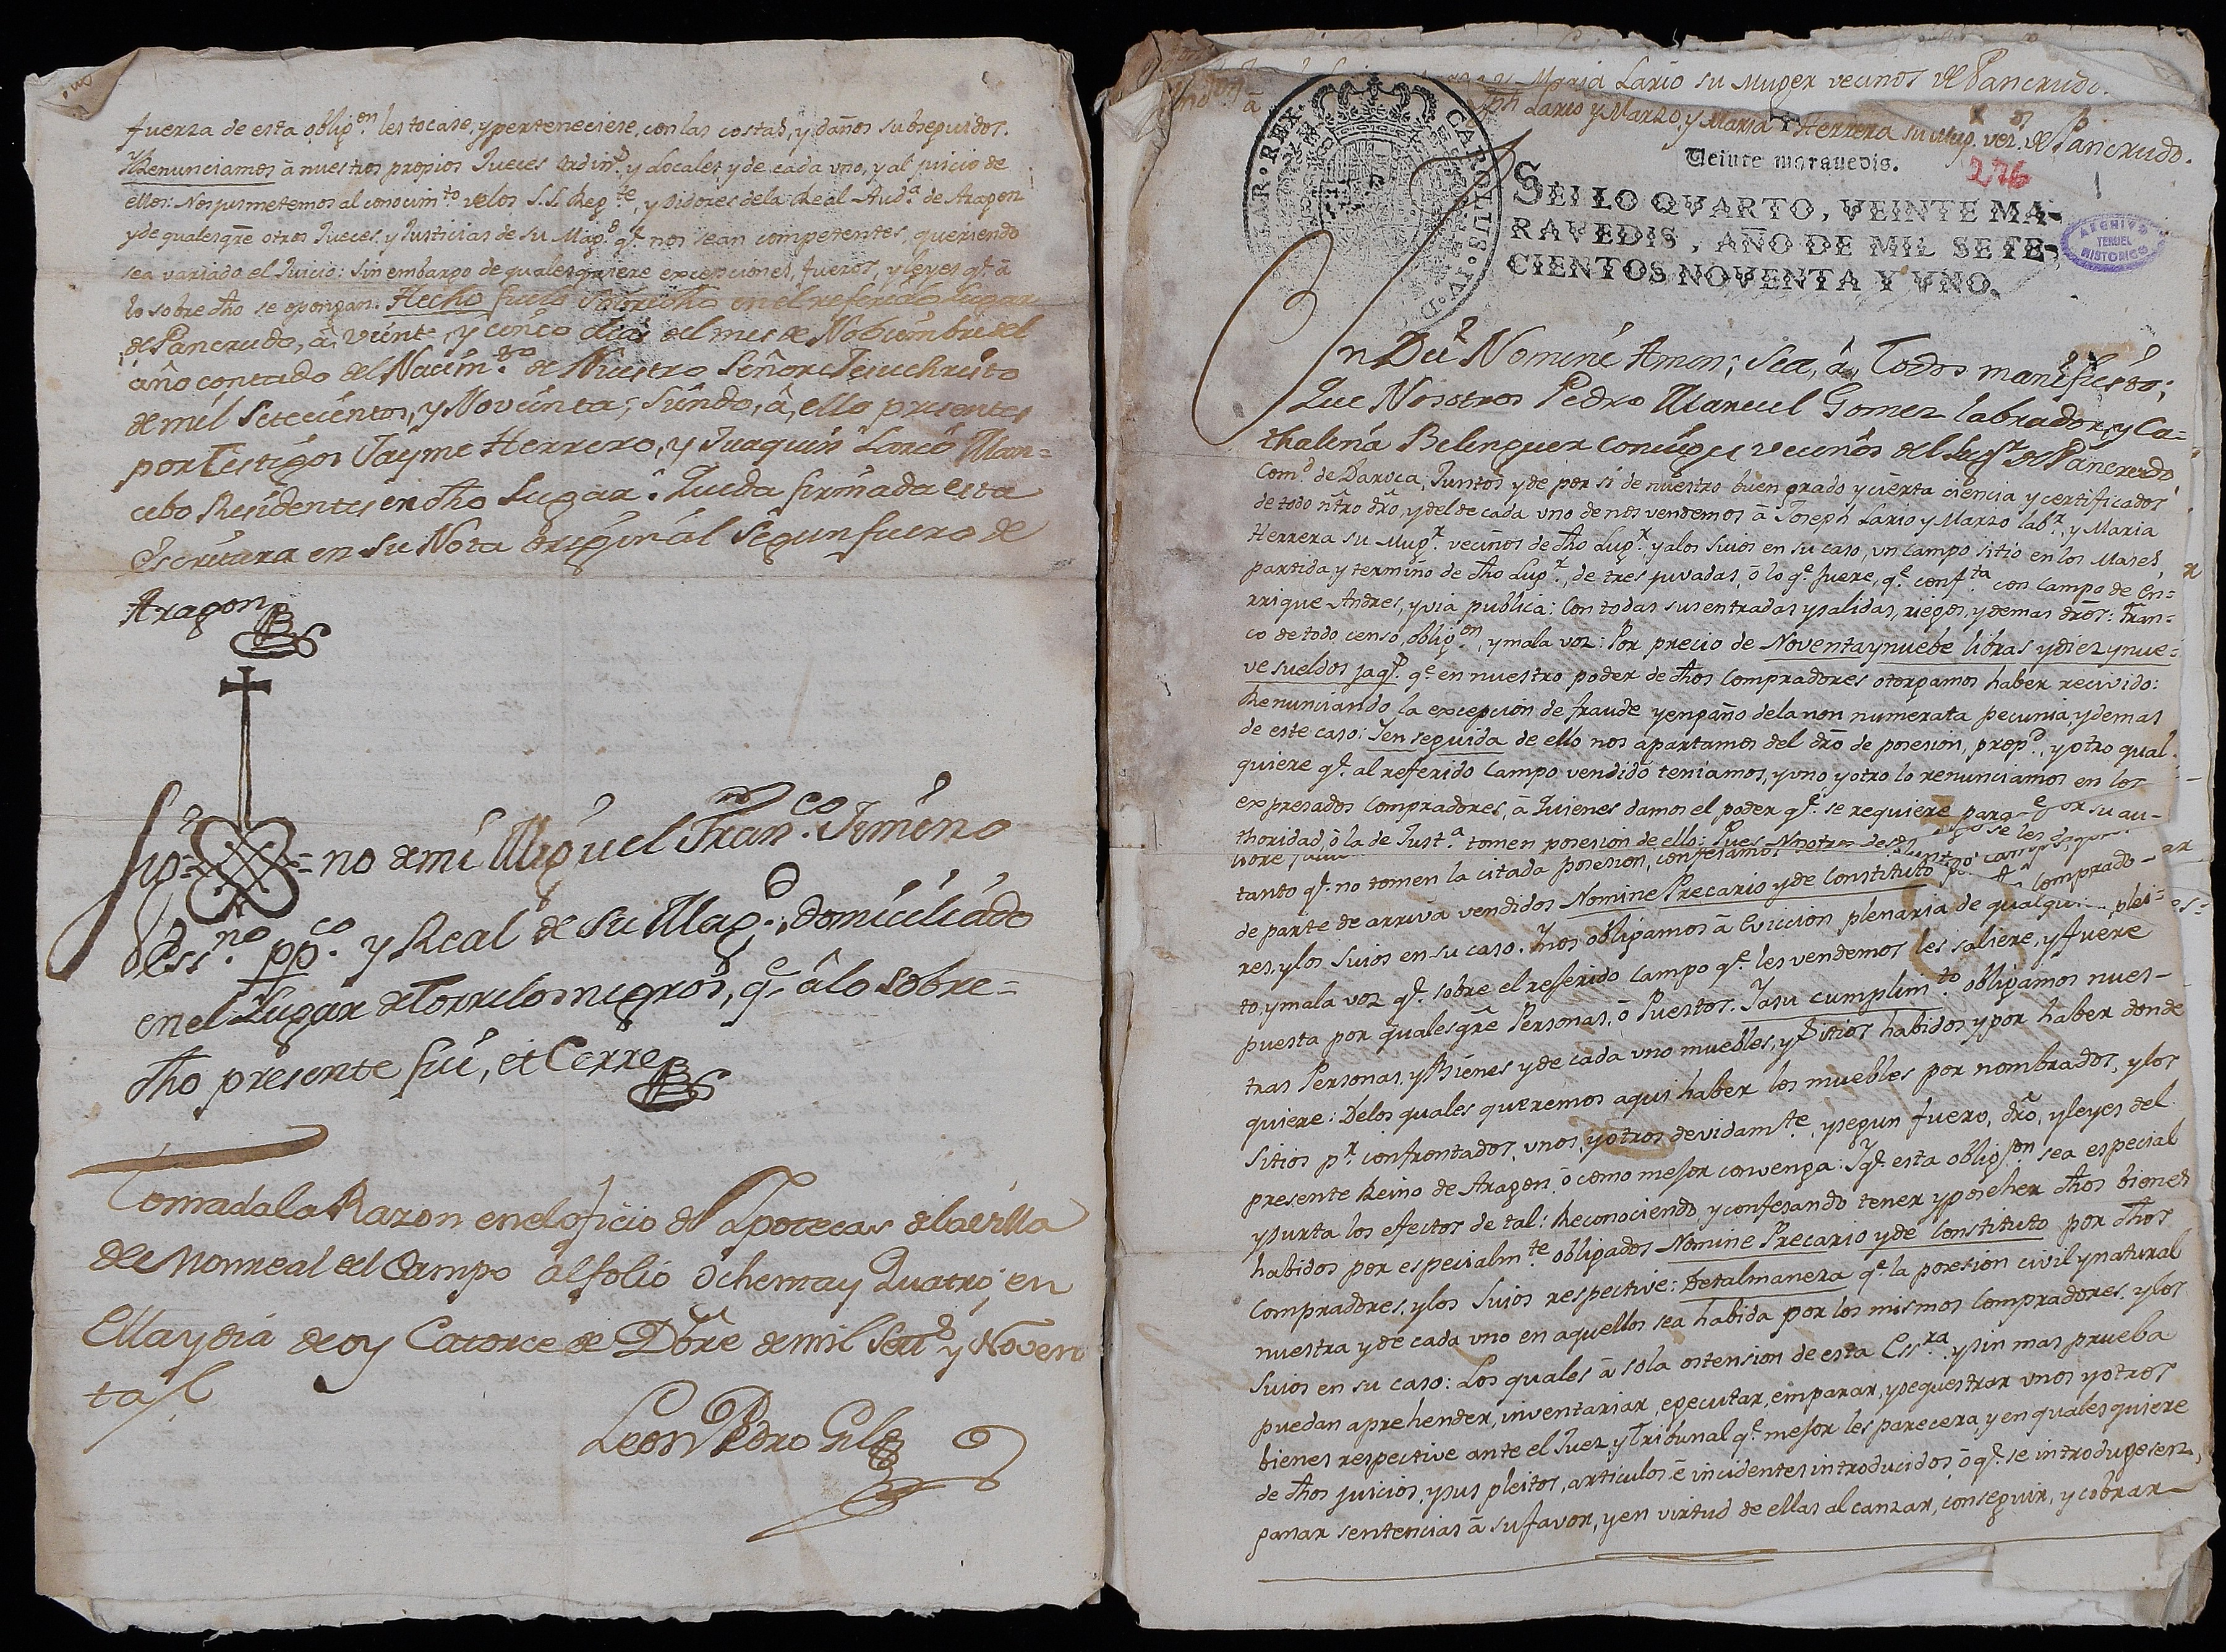 fuerza de esta oblig.on les tocase, y perteneciese, con las costas, y daños subseguidos.
Y Renunciamos â nuestros propios Jueces ordin.s y Locales y de cada uno, y al juicio de
ellos: Nos jusmetemos al conocim.to de los S.S. Reg.te, y oidores de la Real Aud.a de Aragon
y de qualesqe. otros Jueces, y Justicias de su Mag.d q.e nos sean competentes, queriendo
sea variado el Juicio: sin embargo de qualesquiere excepciones, fueros, y leyes q.e â
lo sobredho se opongan. Hecho fue lo sobredho en el referido Lugar
de Pancrudo, â veinte, y cinco dias del mes de Nobiembre del
año contado del Nacim.to de Nuestro Señor Jesuchristo
de mil setecientos, y Noventa; siendo, â, ello presentes
por Testigos Jayme Herrero, y Juaquin Lorco Man=
cebo Residentes en dho Lugar: Queda firmada esta
escritura en su Nota original segun fuero de
Aragon
Sig= =no de mi Miguel Fran.co Jimeno
Ess.no pp.co y Real de su Mag.d; domiciliado
en el Lugar de Torrelosnegros, q.e â lo sobre=
dho presente fui, et Cerre
Tomada la Razon en el oficio de Ipotecas de la villa
de Monreal del Campo al folio ôchenta y Quatro; en
Ella y dia de oy Catorce de Dbre de mil sett.s y Noven
ta
Leon Pedro Gil
Maria Lario su Muger vecinos de Pancrudo.
â Jph Lario y Marzo, y Maria Herrera su Mug. vez. de Pancrudo.
276
1
CAROLUS. IV. D. REX.
Veinte maravedis.
SELLO QVARTO, VEINTE MA-
RAVEDIS, AÑO DE MIL SETE-
CIENTOS NOVENTA Y VNO.
ARCHIVO
TERUEL
HISTORICO
In Dei Nomine Amen; sea, â, Todos manifiesto;
Que Nosotros Pedro Manuel Gomez labrador, y Ca=
thalina Belenguer coniuges vecinos del Lug.r de Pancrudo,
Com.d de Daroca, Juntos y de por si de nuestro buen grado y cierta ciencia y certificados
de todo ntro dro, y del de cada uno de nos vendemos â Joseph Lario y Marzo lab.r, y Maria
Herrera su Mug.r vecinos de dho Lug.r y a los suios en su caso, un campo sitio en los Mases,
partida y termino de dho Lug.r, de tres juvadas, ô lo q.e fuere, q.e conf.ta con campo de En=
rrique Andres, y via publica: Con todas sus entradas y salidas, riegos, y demas dros: Fran=
co de todo censo, oblig.on, y mala voz: Por precio de Noventa y nuebe libras y diez y nue=
ve sueldos jaq.s q.e en nuestro poder de dhos Compradores otorgamos haber recivido:
Renunciando la excepcion de fraude y engaño de la non numerata pecunia, y demas
de este caso: Y en seguida de ello nos apartamos del dro de posesion, prop.d, y otro qual-
quiere q.e al referido Campo vendido teniamos, y uno y otro lo renunciamos en los
expresados Compradores, a Quienes damos el poder q.e se requiere para q.e por su au-
thoridad, ô la de Just.a tomen posesion de ello: Pues Nosotros
tanto q.e no tomen la citada posesion, confesamos
de parte de arriva vendidos Nomine Precario y de Constituto comprado-
res, y los suios en su caso. Y nos obligamos â Eviccion plenaria de qualqu plei-
to, y mala voz q.e sobre el referido Campo q.e les vendemos les saliere, y fuere
puesta por qualesqre Personas, ô Puestos. Y a su cumplim.to obligamos nues-
tras Personas, y Bienes y de cada uno muebles, y sitios habidos y por haber donde
quiere: De los quales queremos aqui haber los muebles por nombrados, y los
sitios p.r confrontados, unos, y otros devidam.te, y segun fuero, dro, y leyes del
presente Reino de Aragon ô como mejor convenga: Y q.e esta oblig.on sea especial
y surta los efectos de tal: Reconociendo y confesando tener y poseher dhos bienes
habidos por especialm.te obligados Nomine Precario y de Constituto por dhos
Compradores, y los suios respective: De tal manera q.e la posesion civil y natural
nuestra y de cada uno en aquellos sea habida por los mismos Compradores, y los
suios en su caso: Los quales â sola ostension de esta Ess.ra y sin mas prueba
puedan aprehender, inventariar, egecutar, emparar, y sequestrar unos y otros
bienes respective ante el Juez, y Tribunal q.e mejor les parecera, y en qualesquiere
de dhos juicios, y sus pleitos, articulos ê incidentes introducidos ô q.e se introdugesen,
ganar sentencias â su favor, y en virtud de ellas alcanzar, conseguir, y cobrar